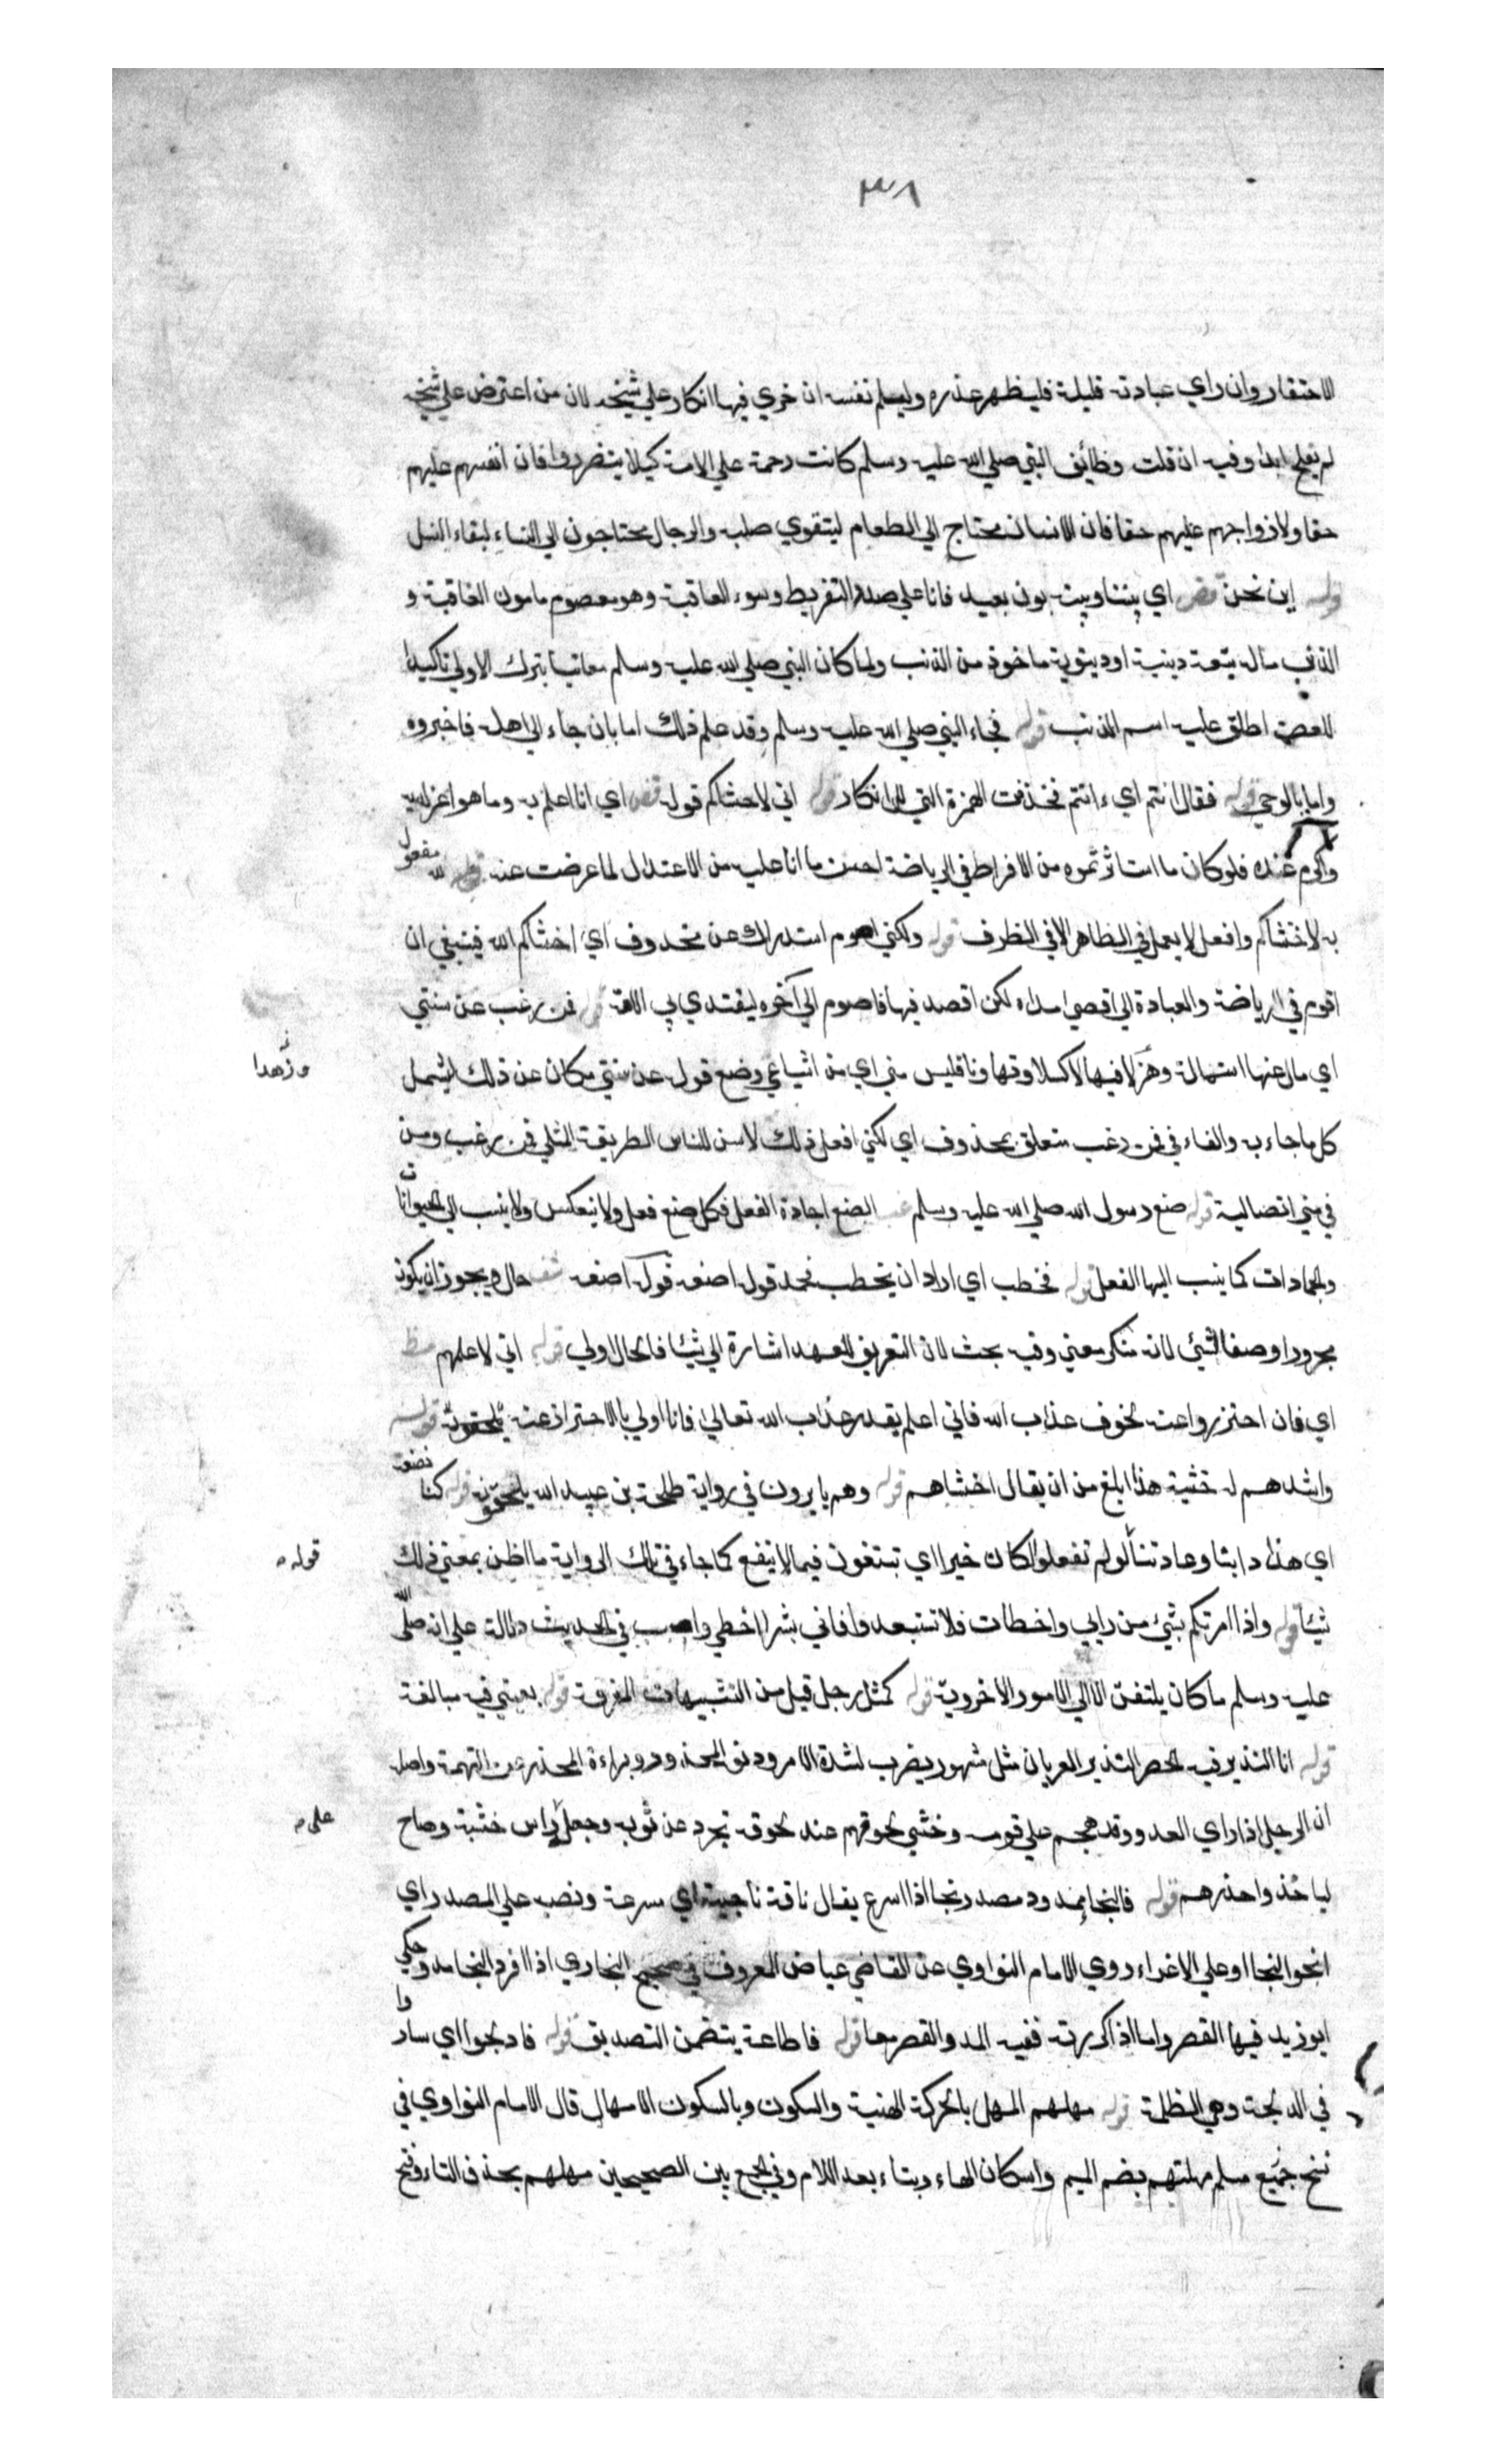 ٣٨
للاحتقار وان راي عبادته قليلة فليظهر عذره وليلم نفسه ان جري فيها انكار علي شيخه لان من اعترض علي شيخه
لم يفلح ابدا وفيه ان قلت وظائف النبي صلي الله عليه وسلم كانت رحمة علي الامة كيلا يتضرروا فان انفسهم عليهم
حقا ولازواجهم عليهم حقا فان الانسان محتاج الي الطعام ليتقوي صلبه والرجال محتاجون الي النساء لبقاء النسل
قوله اين نحن قض اي بيننا وبينه بون بعيد فانا علي صدد التفريط وسوء العاقبة وهو معصوم مامون العاقبة و
الذنب ماله تبعة دينية او دنيوية ماخوذ من الذنب ولما كان النبي صلي الله عليه وسلم معاتبا بترك الاولي تاكيدا
للعصمة اطلق عليه اسم الذنب قوله فجاء النبي صلي الله عليه وسلم وقد علم ذلك اما بان جاء الي اهله فاخبروه
واما بالوحي قوله فقال انتم اي ءانتم فحذفت الهمزة التي للانكار قوله اني لاخشاكم قوله قض اي انا اعلم به وما هو اعز لديه
واكرم عنده فلو كان ما استاثرتموه من الافراط في الرياضة احسن مما انا عليه من الاعتدال لما اعرضت عنه قوله لله مفعول
به لاخشاكم وافعل لا يعمل في الظاهر الا في الظرف قوله ولكني اصوم استدراك عن محذوف اي اخشاكم الله فينبغي ان
اقوم في الرياضة والعبادة الي اقصي مداه لكن اقصد فيها فاصوم الي آخره ليقتدي بي الامة قوله فمن رغب عن سنتي
اي مال عنها استهانة وهزلا فيها لا كسلا وتهاونا فليس مني اي من اشياعي وضع قوله عن سنتي مكان عن ذلك ليشمل
وزهدا
كل ما جاء به والفاء في فمن رغب متعلق بمحذوف اي لكني افعل ذلك لاسن للناس الطريقة المثلي فمن رغب ومن
في مني اتصالية قوله صنع رسول الله صلي الله عليه وسلم غب الصنع اجادة الفعل فكل صنع فعل ولا ينعكس ولا ينسب الي الحيوانات
والجمادات كما ينسب اليها الفعل قوله فخطب اي اراد ان يخطب فحمد قوله اصنعه قوله اصنعه شف حال ويجوز ان يكون
مجرورا وصفا لشيئ لانه منكر معني وفيه بحث لان التعريف للعهد اشارة الي شيئا فالحال اولي قوله اني لاعلمهم مظ
اي فان احترزوا عنه لخوف عذاب الله فاني اعلم بقدر عذاب الله تعالي فانا اولي بالاحتراز عنه قوله
واشدهم له خشية هذا ابلغ من ان يقال اخشاهم قوله وهم يابرون في رواية طلحة بن عبيد الله يلحقون قوله كنا نصنعه
اي هذا دابنا وعادتنا قوله لو لم تفعلوا لكان خيرا اي تبتغون فيما لا ينفع كما جاء في تلك الرواية ما اظن يعني ذلك
قوله
شيئا قوله واذا امرتكم بشيئ من رايي واخطات فلا تستبعدوا فاني بشر اخطي واصيب في الحديث دلالة علي انه صلي الله
عليه وسلم ما كان يلتفت الا الي الامور الاخروية قوله كمثل رجل قيل من التشبيهات المفرقة قوله بعيني فيه مبالغة
قوله انا النذير فيه لحصر النذير العريان مثل مشهور يضرب لشدة الامر ودنو المحذور وبراءة المحذر عن التهمة واصله
ان الرجل اذا راي العدو وقد هجم علي قومه وخشي لحوقهم عند لحوقه تجرد عن ثوبه وجعل راس خشبة وصاح
علي
لياخذوا حذرهم قوله فالنجا ممدود مصدر نجا اذا اسرع يقال ناقة ناجية اي سرعة ونصبه علي المصدر اي
انجوا النجا او علي الاغراء روي الامام النواوي عن القاضي عياض المعروف في صحيح البخاري اذا افرد النجا مده وحكي
ابو زيد فيها القصر واما اذا كررته ففيه المد والقصر معا قوله فاطاعه يتضمن التصديق قوله فادلجوا اي ساروا
في الدلجة وهي الظلمة قوله مهلهم المهل بالحركة الهنية والسكون وبالسكون الامهال قال الامام النواوي في
نسخ جميع مسلم مهلتهم بضم الميم واسكان الهاء وبتاء بعد اللام وفي الجمع بين الصحيحين مهلهم بحذف التاء وفتح